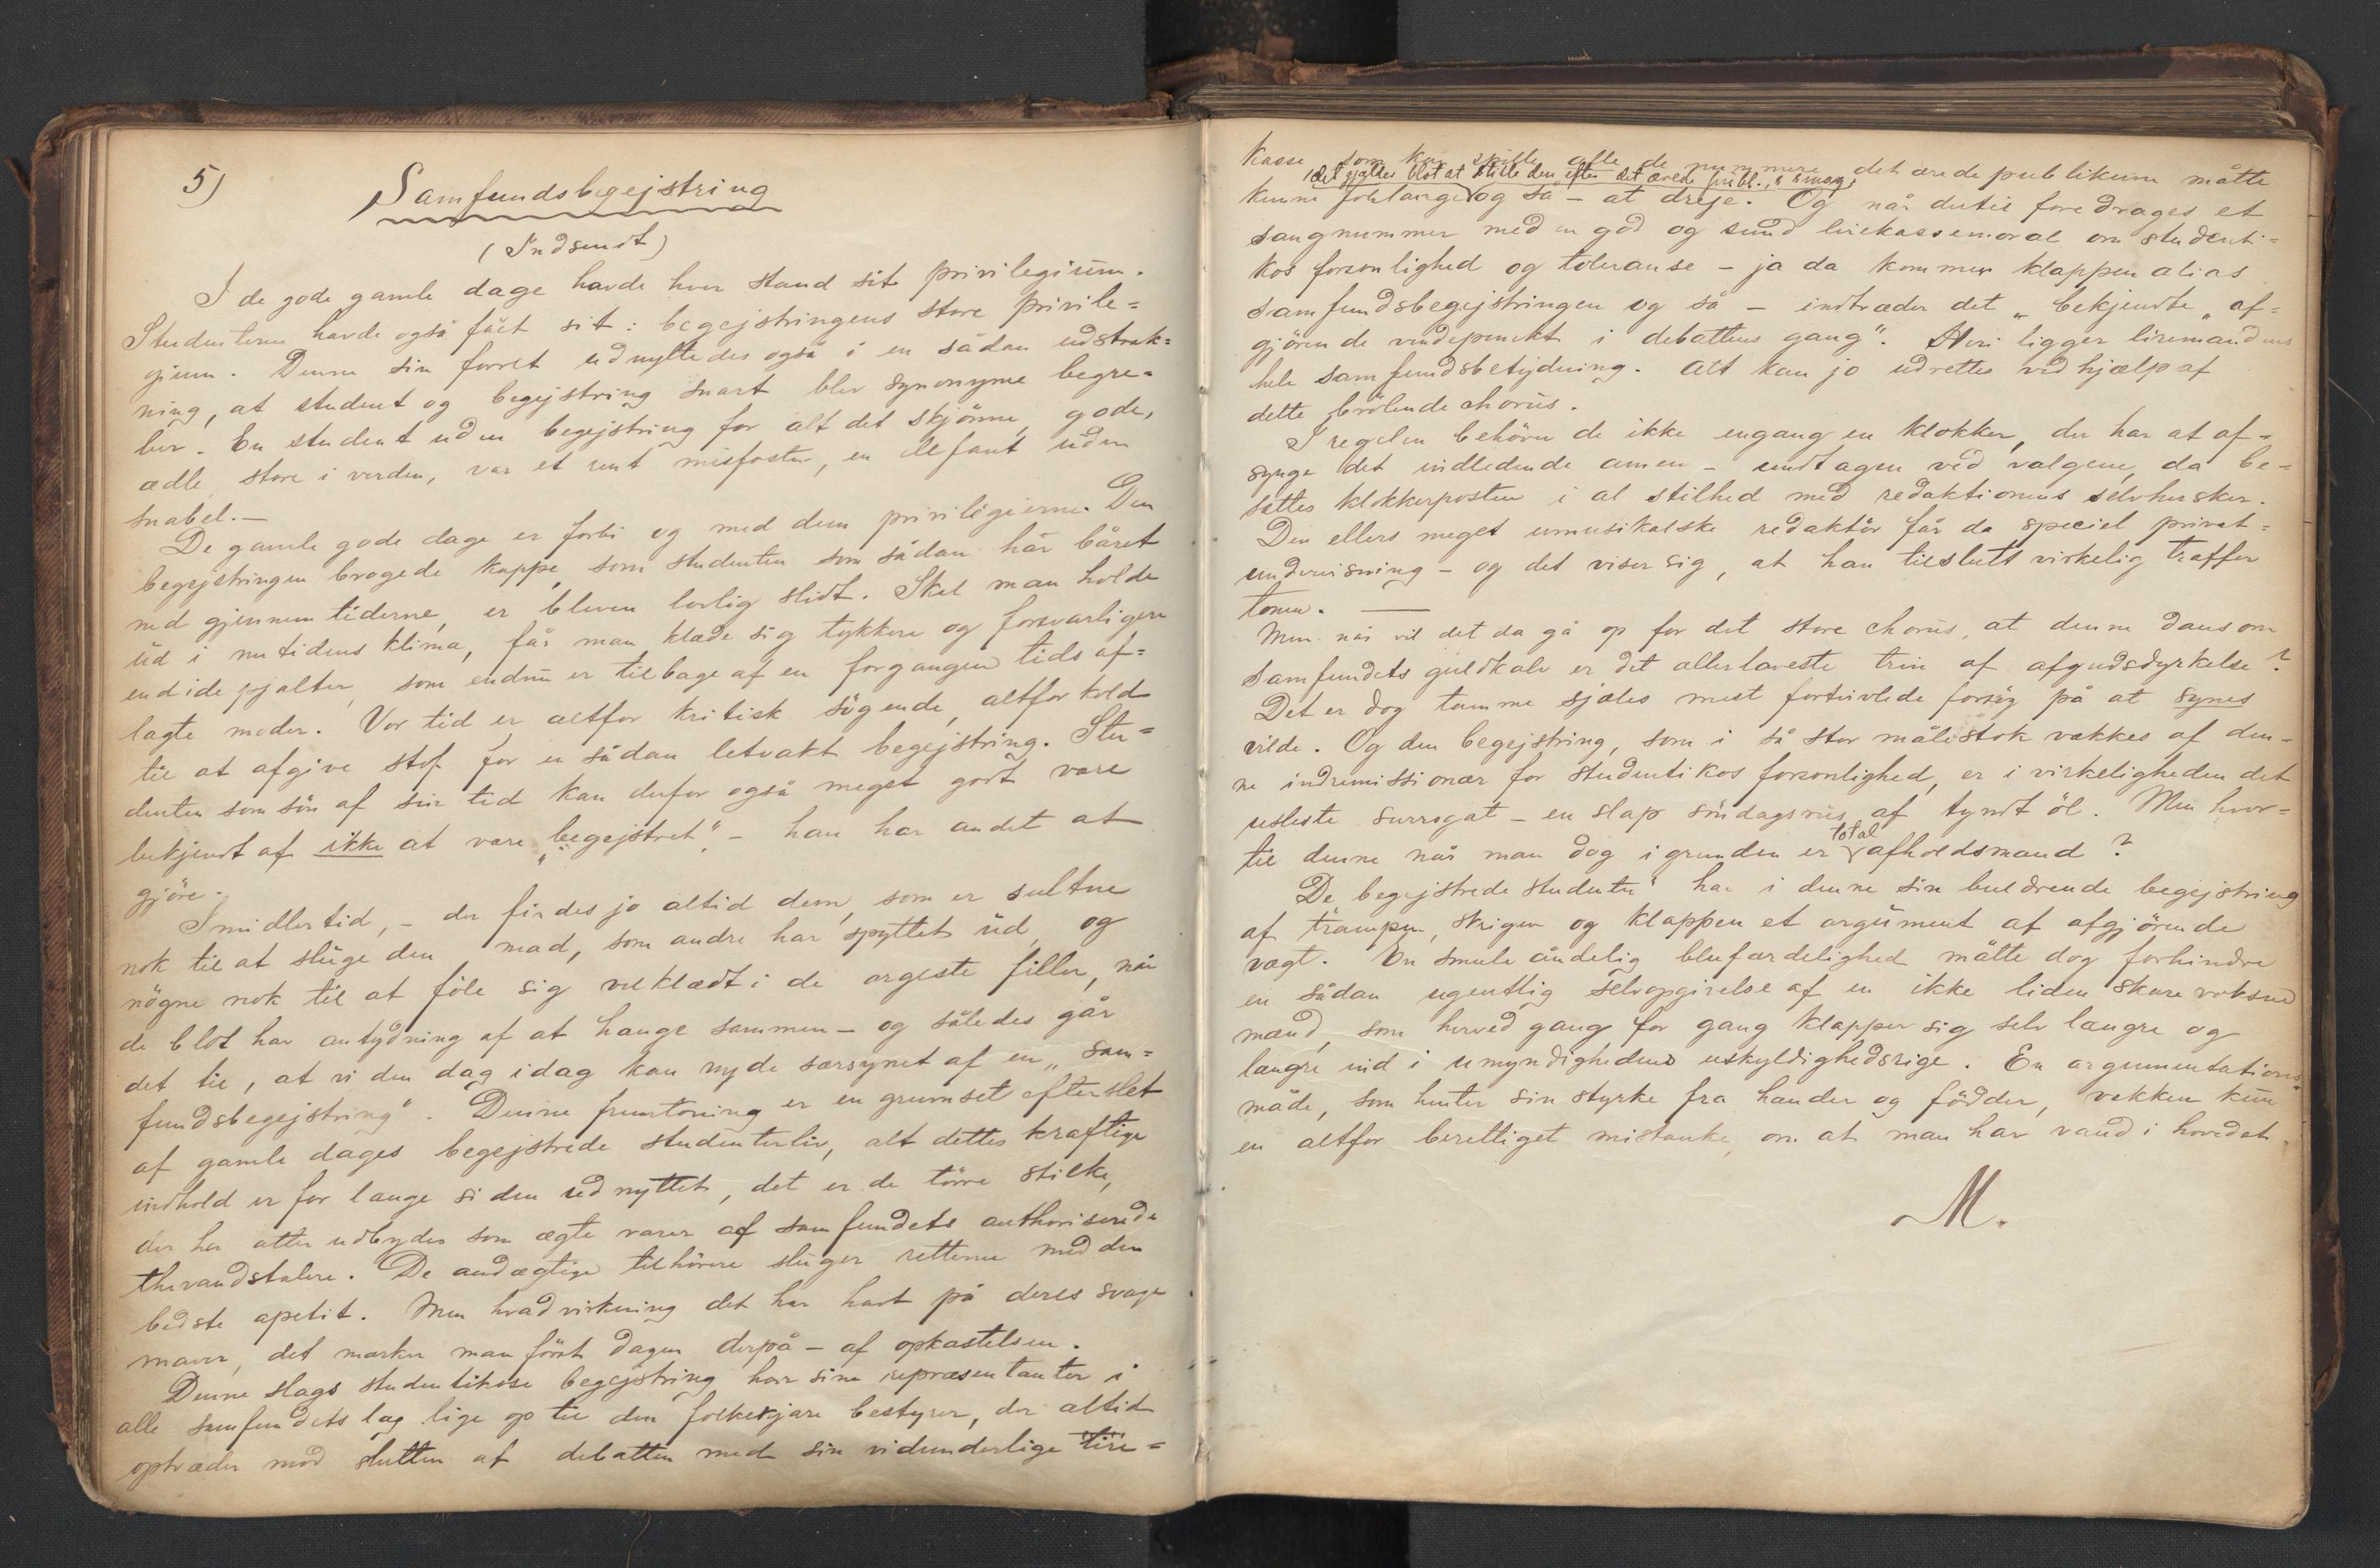 5)
Samfundsbegejstring
(Indsendt)
I de gode gamle dage havde hver stand sit privilegium.
Studenterne havde også fået sit: begejstringens store privile=
gium. Denne sin forret udnyttedes også i en sådan udstræk=
ning, at student og begejstring snart blev synonyme begre=
ber. En student uden begejstring for alt det skjönne, gode,
ædle, store i verden, var et rent misfoster, en elefant uden
snabel. —
De gamle gode dage er forbi og med dem privilegierne. Den
begejstringen brogede kappe, som studenten som sådan har båret
ned gjennem tiderne, er bleven lovlig slidt. Skal man holde
ud i nutidens klima, får man klæde sig tykkere og forsvarligere
end i de pjalter, som endnu er tilbage af en forgangen tids af=
lagte moder. Vor tid er altfor kritisk sögende, altfor kold
til at afgive stof for en sådan letvakt begejstring. Stu=
denten som sön af sin tid kan derfor også meget godt være
bekjendt af ikke at være „begejstret“ – han har andet at
gjöre.
Imidlertid, – der findes jo altid dem, som er sultne
nok til at sluge den mad, som andre har spyttet ud, og
nögne nok til at föle sig velklædt i de argeste filler, når
de blot har antydning af at hænge sammen – og således går
det til, at vi den dag idag kan nyde særsynet af en „sam=
fundsbegejstring“. Denne fremtoning er en grumset efterslet
af gamle dages begejstrede studenterliv, alt dettes kraftige
indhold er for længe siden udnyttet, det er de törre stilke,
der her atter udbydes som ægte varer af samfundets authoriserede
thevandstalere. De andægtige tilhörere sluger retterne med den
bedste apetit. Men hvad virkning det har havt på deres svage
maver, det mærker man först dagen derpå – af opkastelsen.
Denne slags studentikose begejstring har sine repræsentanter i
alle samfundets lag lige op til den folkekjære bestyrer, der altid
optræder mod slutten af debatten med sin vidunderlige lire=
kasse, som kan spille alle de nummere det ærede publikum måtte
(det gjælder blot at stille den efter det ærede publ.s smag)
kunne forlange og så – at dreje. Og når dertil foredrages et
sangnummer med en god og sund lirekassemoral om studenti=
kos forsonlighed og toleranse – ja da kommer klappen alias
samfundsbegejstringen og så – indtræder det „bekjendte „af=
gjörende vendepunkt i debattens gang“. Heri ligger liremandens
hele samfundsbetydning. Alt kan jo udrettes ved hjælp af
dette brölende chorus.
I regelen behöver de ikke engang en klokker, der har at af=
synge det indledende amen – undtagen ved valgene, da be=
sættes klokkerposten i al stilhed med redaktionens selvhersker.
Den ellers meget umusikalske redaktör får da speciel privat=
undervisning – og det viser sig, at han tilslutt virkelig træffer
tonen. —
Men når vil det da gå op for det store chorus, at denne dans om
samfundets guldkalv er det allerlaveste trin af afgudsdyrkelse?
Det er dog tamme sjæles mest fortvivlede forsög på at synes
vilde. Og den begejstring, som i så stor målestok vækkes af den=
ne indremissionær for studentikos forsonlighed, er i virkeligheden det
usleste surrogat – en slap söndagsrus af tyndt öl. Men hvor=
total
til denne når man dog i grunden er afholdsmand?
De begejstrede studenter“ har i denne sin buldrende begejstring
af trampen, skrigen og klappen et argument af afgjörende
vægt. En smule åndelig blufærdelighed måtte dog forhindre
en sådan egentlig selvopgivelse af en ikke liden skare voksne
mænd, som herved gang for gang klapper sig selv længre og
længre ind i umyndighedens uskyldighedsrige. En argumentations=
måde, som henter sin styrke fra hænder og födder, vækker kun
en altfor berettiget mistanke, om at man har vand i hovedet.
M.